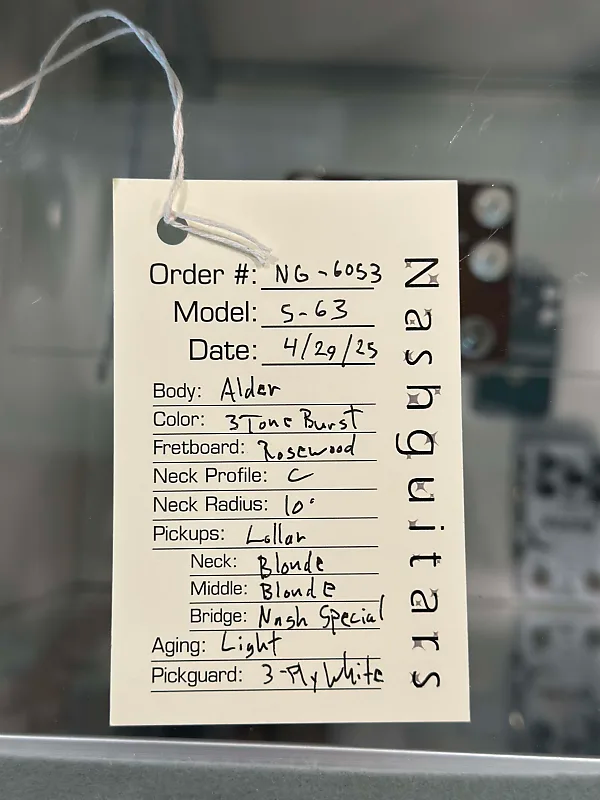 Order #: NG-6053
Model: S-63
Date: 4/29/25
Body: Alder
Color: 3 Tone Burst
Fretboard: Rosewood
Neck Profile: C
Neck Radius: 10"
Pickups: Lollar
Neck: Blonde
Middle: Blonde
Bridge: Nash Special
Aging: Light
Pickguard: 3-Ply White
Nashguitars